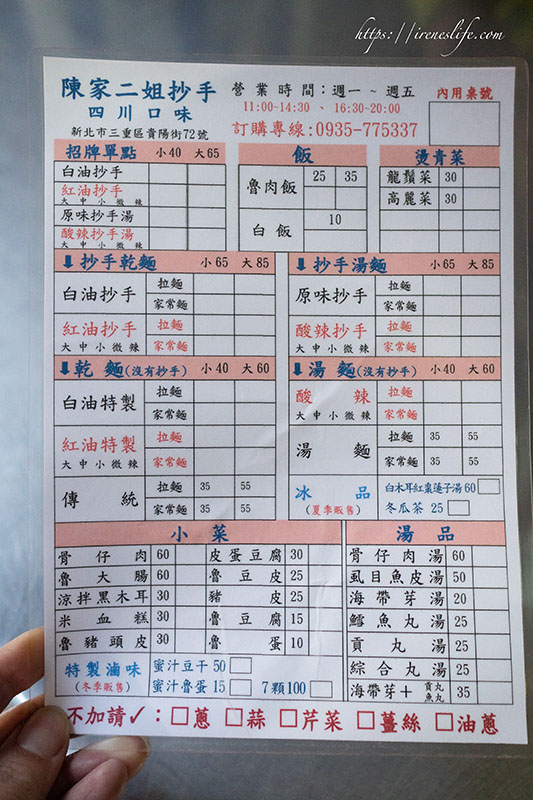 https://ireneslife.com
陳家二姐抄手
四川口味
新北市三重區貴陽街72號
營業時間：週一～週五
11:00~14:30、16:30~20:00
訂購專線:0935-775337
內用桌號
招牌單點 小40 大65
白油抄手
紅油抄手
大中小微辣
原味抄手湯
酸辣抄手湯
大中小微辣
飯
魯肉飯 25 35
白飯 10
燙青菜
龍鬚菜 30
高麗菜 30
⬇抄手乾麵 小65 大85
白油抄手 拉麵
家常麵
紅油抄手 拉麵
大中小微辣 家常麵
⬇抄手湯麵 小65 大85
原味抄手 拉麵
家常麵
酸辣抄手 拉麵
大中小微辣 家常麵
⬇乾麵(沒有抄手) 小40 大60
白油特製 拉麵
家常麵
紅油特製 拉麵
大中小微辣 家常麵
傳統 拉麵 35 55
家常麵 35 55
⬇湯麵(沒有抄手) 小40 大60
酸辣 拉麵
大中小微辣 家常麵
湯麵 拉麵 35 55
家常麵 35 55
冰品
(夏季販售)
白木耳紅棗蓮子湯60
冬瓜茶 25
小菜
骨仔肉 60 皮蛋豆腐 30
魯大腸 60 魯豆皮 25
涼拌黑木耳 30 豬皮 25
米血糕 30 魯豆腐 15
魯豬頭皮 30 魯蛋 10
特製滷味
(冬季販售)
蜜汁豆干50
蜜汁魯蛋15 7顆100
湯品
骨仔肉湯 60
虱目魚皮湯 50
海帶芽湯 20
鱈魚丸湯 25
貢丸湯 25
綜合丸湯 25
海帶芽＋貢丸魚丸 35
不加請✓：□蔥 □蒜 □芹菜 □薑絲 □油蔥